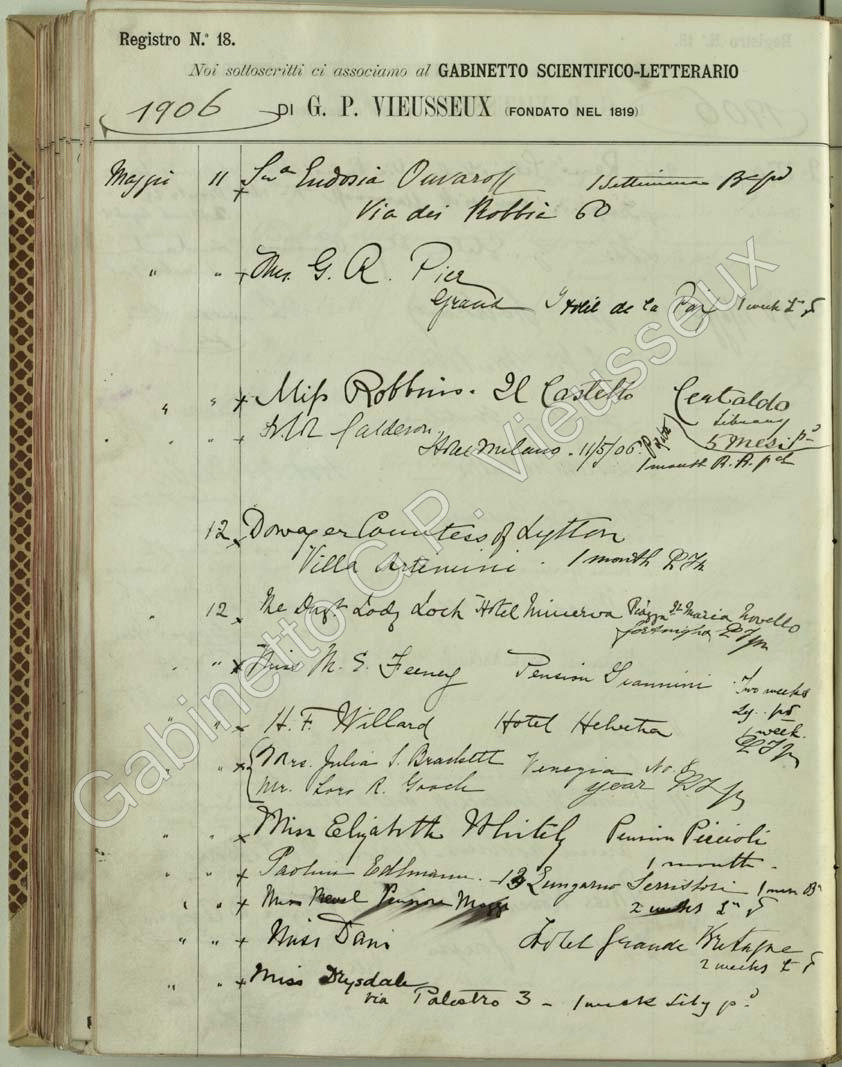 Registro N.º 18.
Noi sottoscritti ci associamo al GABINETTO SCIENTIFICO-LETTERARIO
1906 DI G. P. VIEUSSEUX (FONDATO NEL 1819)
Maggio 11 Eudosia Ouvaroff 1 Settimana
Via dei Robbia 60
" " Mrs. G. R. Pier
Grand Hotel de la Paix 1 week
" " Miss Robbins. Il Castello Certaldo
Library
5 mesi pd
" " Calderon
Hotel Milano. 11/5/06.
1 month R. R. pd
12 Dowager Countess of Lytton
Villa Artemini. 1 month
" 12 The Dugr Lady Loch Hotel Minerva Piazza Sta Maria Novella
" " Miss M. S. Feeney Pension Giannini Two weeks
pd
" " H. F. Willard Hotel Helvetia 1 week.
" " Mrs. Julia S. Brackett Venezia No. 8
Mr. R. Gooch year
" " Miss Elizabeth Whitely Pension Piccioli
1 month
" " Edlmann. 13 Lungarno Serristori
" " Miss Pension
2 weeks
" " Miss Dani Hotel Grande Bretagne
2 weeks
" " Miss Drysdale
via Palestro 3 - 1 week Liby pd
Gabinetto G.P. Vieusseux